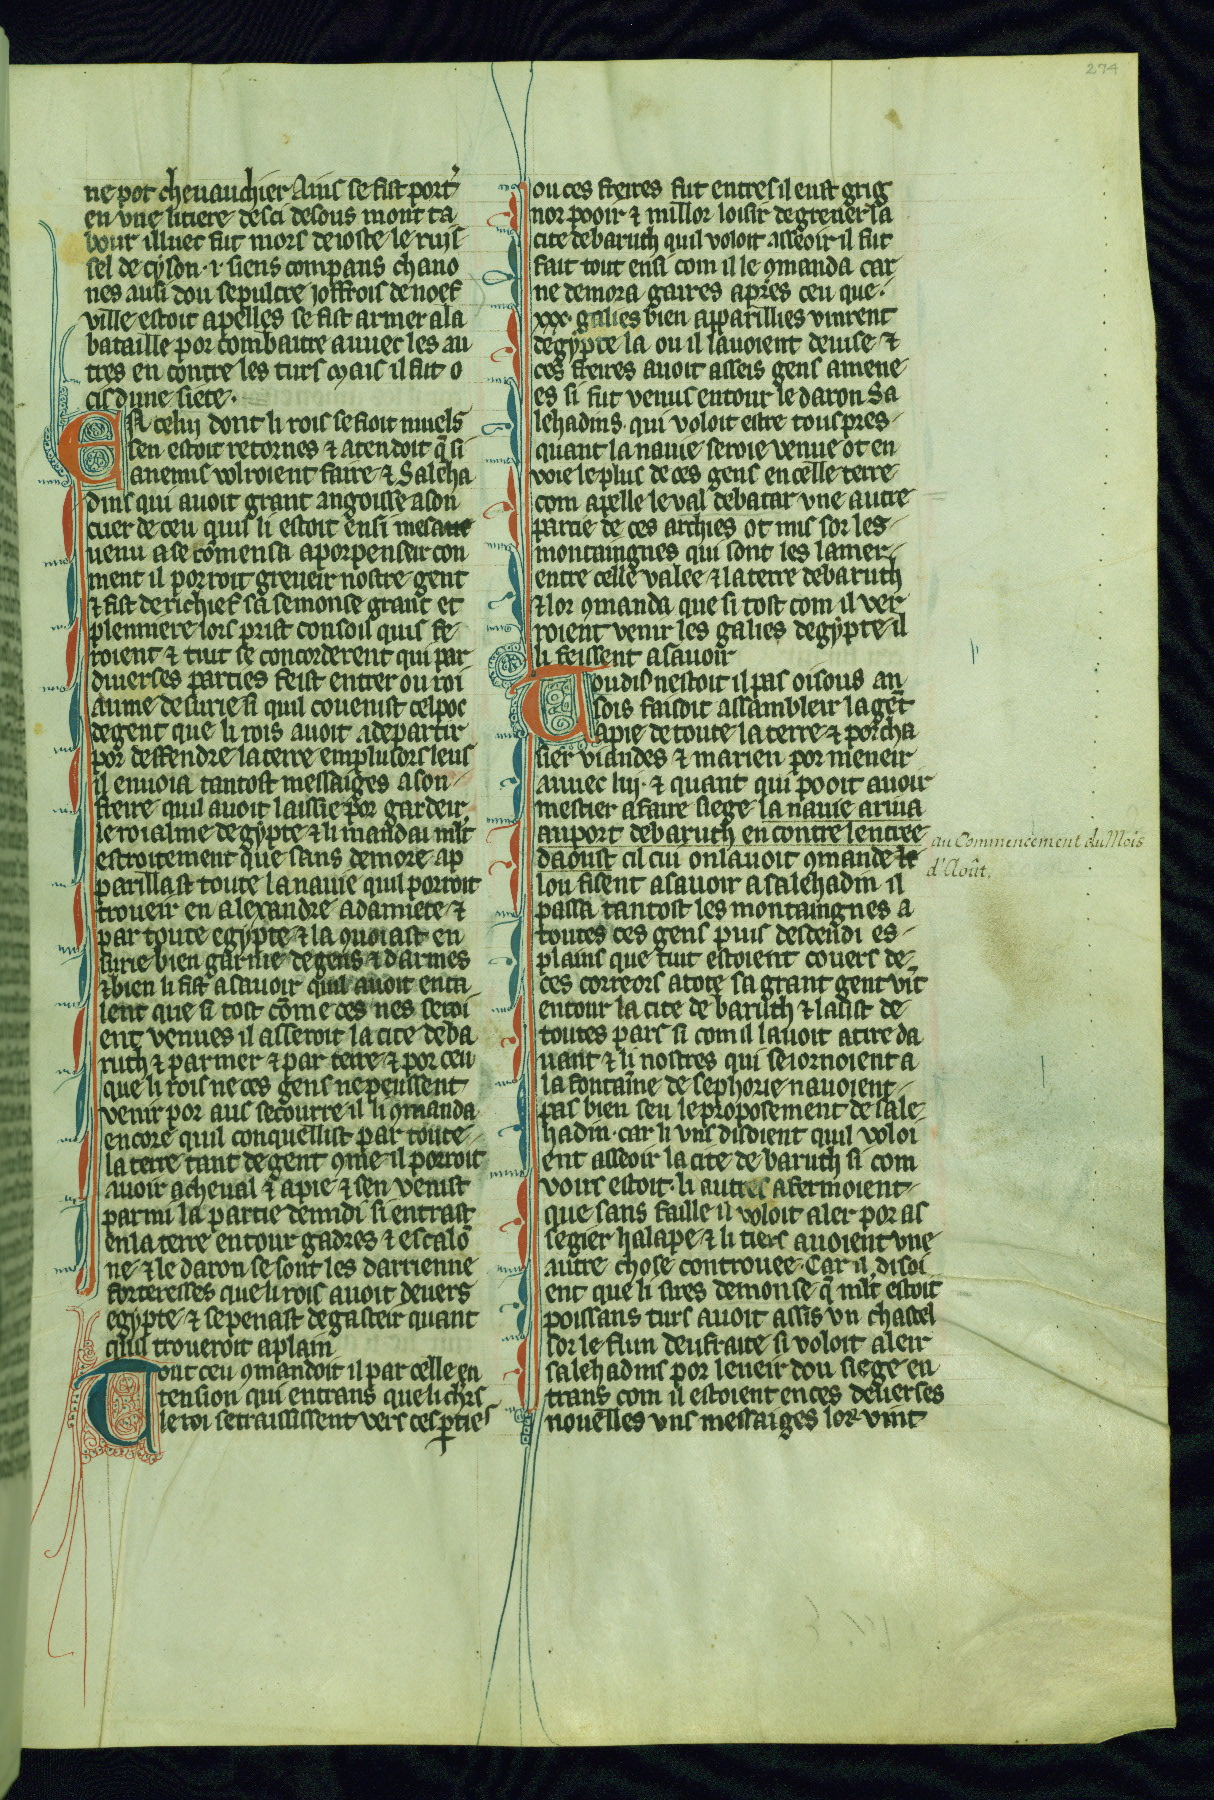 274
ne pot cheuauchier Ains se fist port'
en vne litiere desci desous mont ta
bour illuec fut mors deioste le ruis
sel de cyson · i · siens compans chano
nes ausi dou sepulcre joffrois de noef
ville estoit apelles se fist armer a la
bataille por combaitre auuec les au
tres en contre les turs Mais il fut o
cis dune siete ·
EN celui dont li rois se fioit muels
sen estoit retornes & atendoit q̄ si
anemis volroient faire & Saleha
dins qui auoit grant angoisse a son
cuer de ceu quis li estoit ensi mesaue
uenu a se cōmensa a porpenseir con
ment il porroit greueir nostre gent
& fist de richief sa semonse grant et
plenniere lors prist consoil quis fe
roient & tuit se concorderent qui par
diuerses parties feist entrer ou roi
aume de surie si quil couenist cel poc
de gent que li rois auoit a departir
por deffendre la terre em plusors leus
il enuoia tantost messaiges a son
freire quil auoit laissie por gardeir
le roialme degypte & li mandai mlt
estroitement que sans demore ap
parillast toute la nauie quil porroit
troueir en alexandre a damiete &
par toute egypte & la 9uoiast en
surie bien garnie de gens & darmes
& bien li fist a sauoir quil auoit enta
lent que si tost cōme ces nes seroi
ent venues il asseroit la cite de ba
ruth & par mer & par terre & por ceu
que li rois ne ces gens ne peussent
venir por aus secourre il li 9manda
encore quil conquellist par toute
la terre tant de gent 9me il porroit
auoir a cheual & a pie & sen venist
parmi la partie de midi si entrast
en la terre entour gadres & escalō
ne & le daron se sont les darrienne
forteresses que li rois auoit deuers
egypte & se penast de gasteir quant
quil troueroit a plain
Tout ceu 9mandoit il par celle en
tension qui entrans que li chr̄s
le roi se traississent vers ces pties
ou ces freires fut entres il eust grig
nor pooir & millor loisir de greueir sa
cite de baruth quil voloit asseoir il fut
fait tout ensi com il le 9manda car
ne demora gaires apres ceu que ·
xxx · galies bien apparillies vinrent
degypte la ou il lauoient deuise &
ces freires auoit asseis gens amene
es si fut venus entour le daron Sa
lehadins · qui voloit estre tous pres
quant la nauie seroie venue ot en
voie le plus de ces gens en celle terre
com apelle le val de batar vne autre
partie de ces archies ot mis sor les
montaingnes qui sont les la mer
entre celle valee & la terre de baruth
& lor 9manda que si tost com il ver
roient venir les galies degypte il
li feissent a sauoir
Toudis nestoit il pas oisous an
sois faisoit assambleir la gēt
a pie de toute la terre & porcha
sier viandes & marien por meneir
auuec lui · & quant qui pooit auoir
mestier a faire siege la nauie ariua
au port de baruth en contre lentree
daoust cil cui on lauoit 9mande le
lou fisent a sauoir a salehadin il
passa tantost les montaingnes a
toutes ces gens puis desdendi es
plains que tuit estoient couers de
ces correors a tote sa grant gent vīt
entour la cite de baruth & lasist de
toutes pars si com il lauoit atire da
uant & li nostres qui seiornoient a
la fontainne de sephorie nauoient
pas bien seu le proposement de sale
hadin · car li vns disoient quil voloi
ent asseoir la cite de baruth si com
voirs estoit · li autres afermoient
que sans faille il voloit aler por as
segier halape & li tiers auoient vne
autre chose controuee · Car il disoi
ent que li sires demonse q̄ mlt estoit
poissans turs auoit assis vn chastel
sor le flun deufraite si voloit aleir
salehadins por leueir dou siege en
trans com il estoient en ces deuerses
nouelles vns messaiges lor vint
au Commencement du Mois
d'Août.